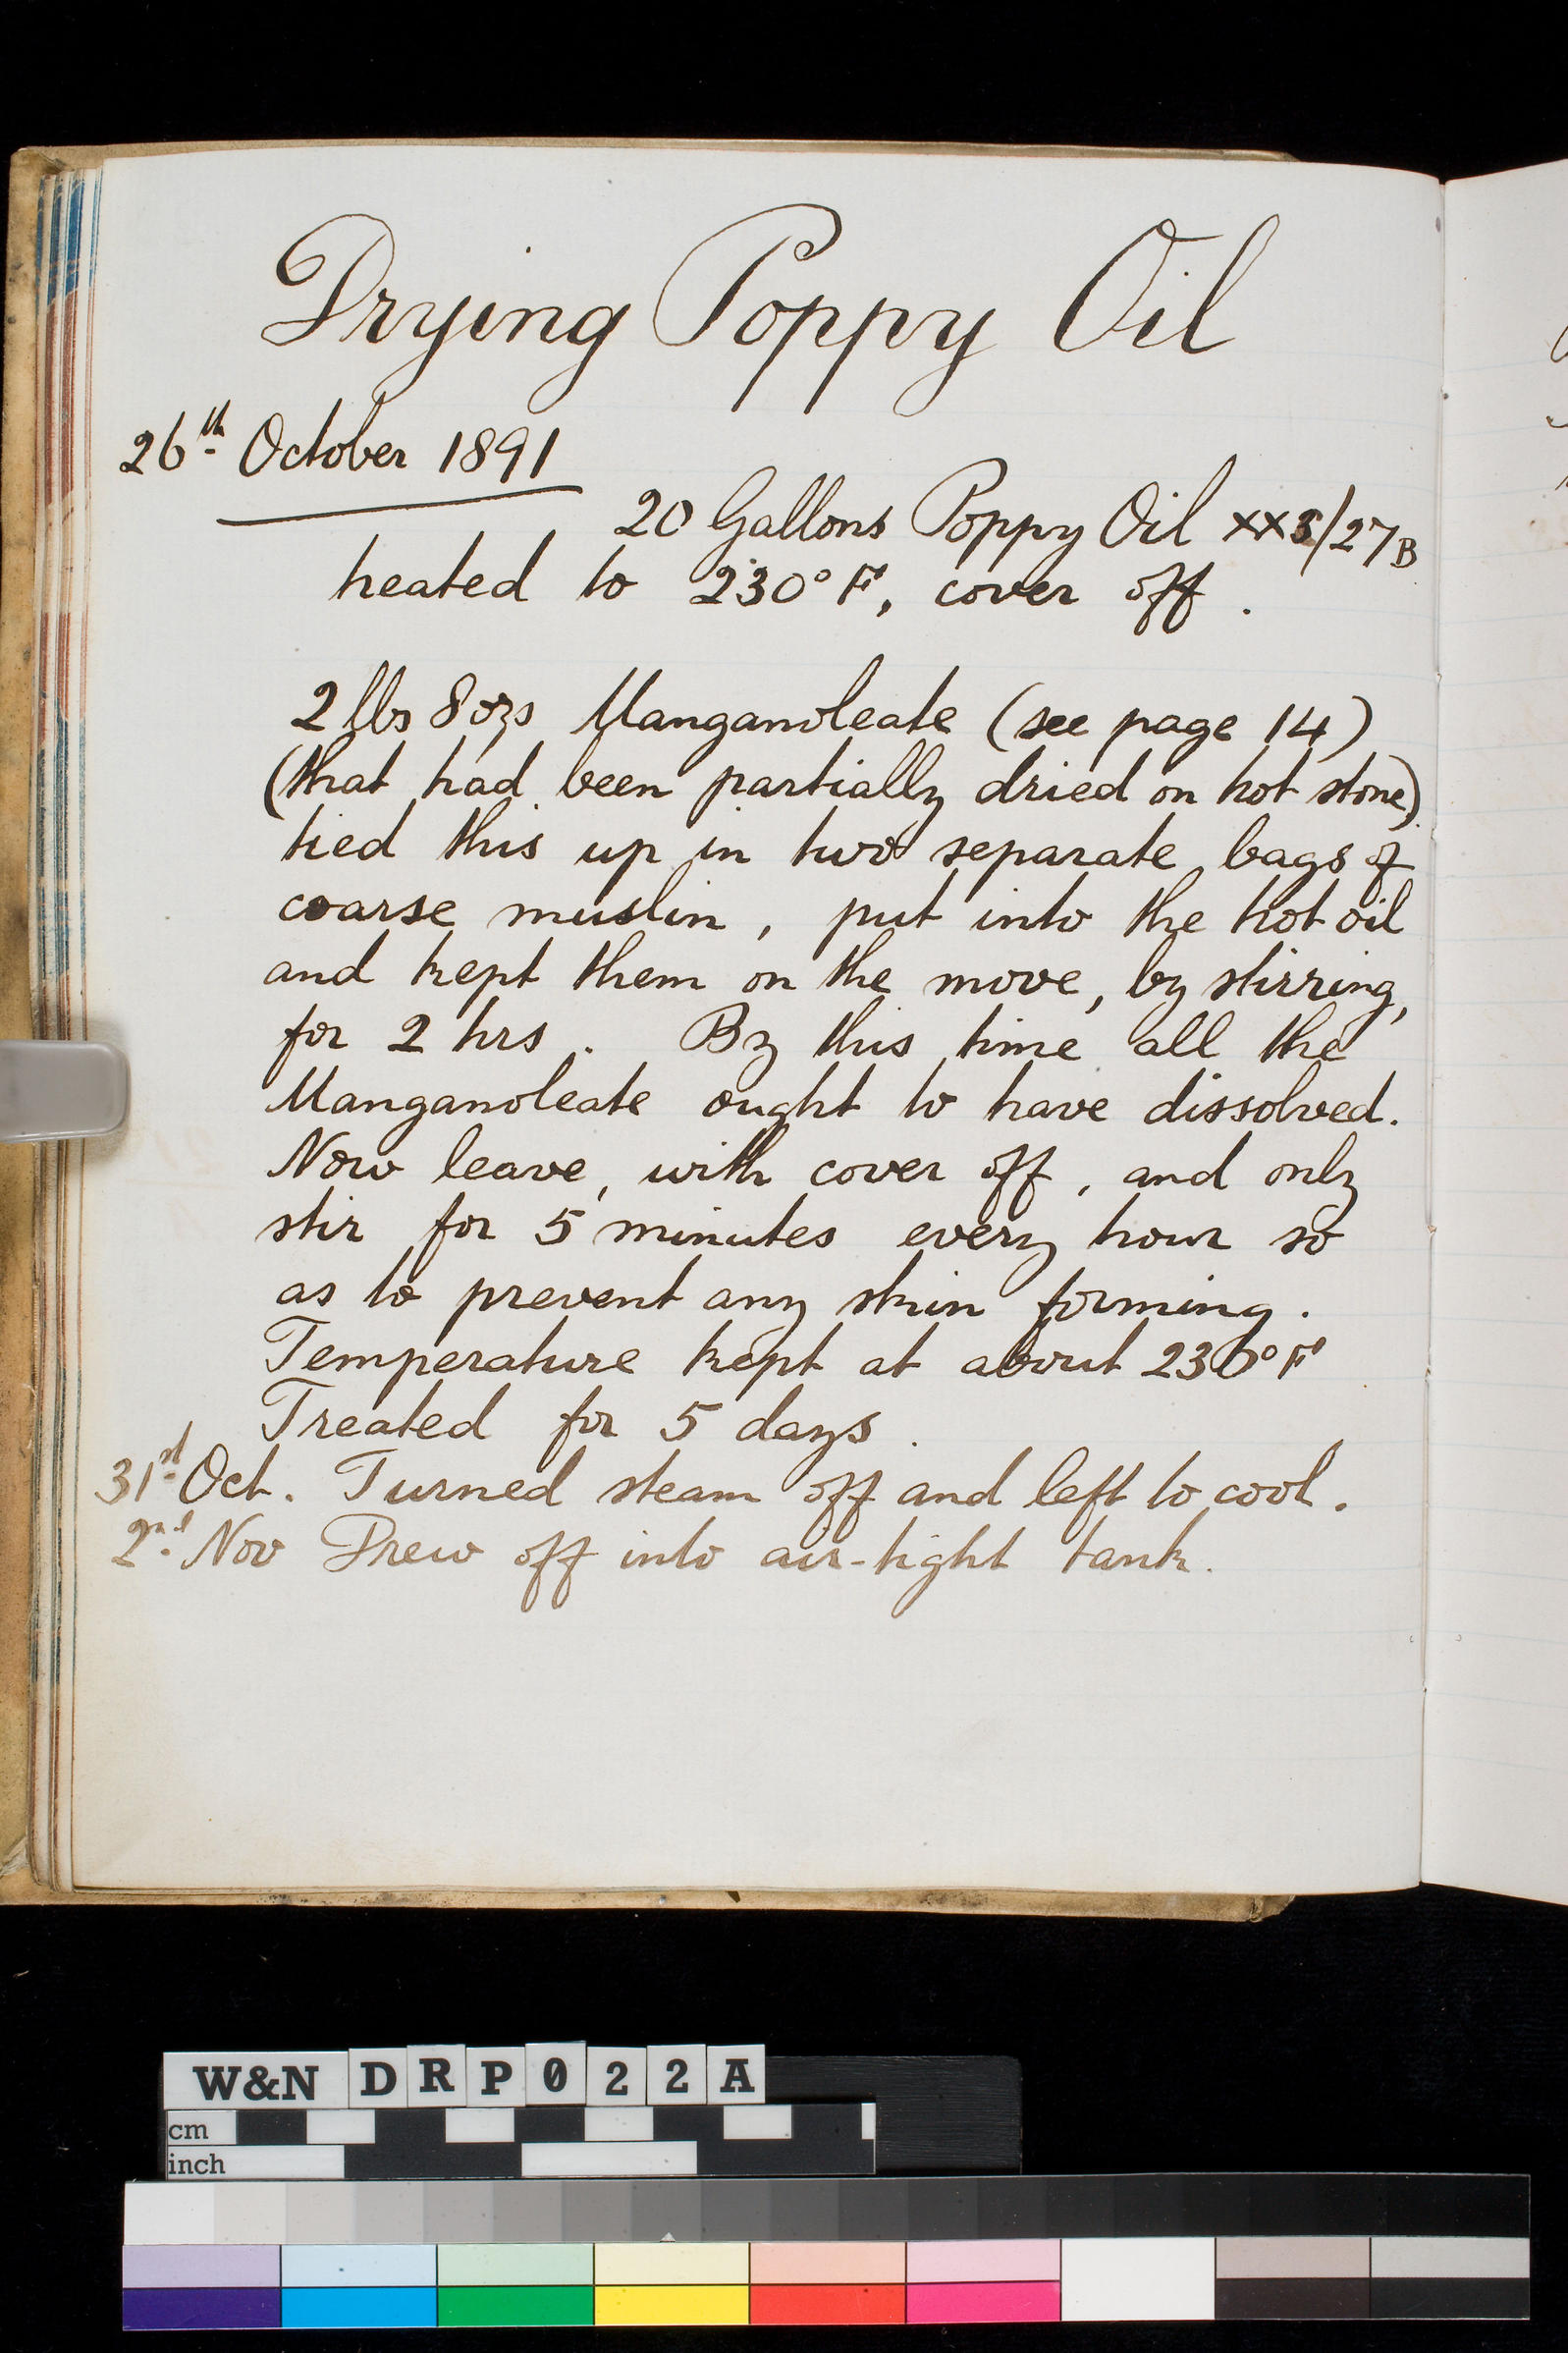 Drying Poppy Oil
26th October 1891
20 Gallons Poppy Oil xxs/27B
heated to 230° F, cover off.
2 lbs 8 ozs Manganoleate (see page 14)
(that had been partially dried on hot stone)
tied this up in two separate bags of
coarse muslin, put into the hot oil
and kept them on the move, by stirring,
for 2 hrs. By this time all the
Manganoleate ought to have dissolved.
Now leave, with cover off, and only
stir for 5 minutes every hour so
as to prevent any skin forming.
Temperature kept at about 230° F
Treated for 5 days.
31st Oct. Turned steam off and left to cool.
2nd Nov Drew off into air-tight tank.
W&N DRP022A
cm
inch